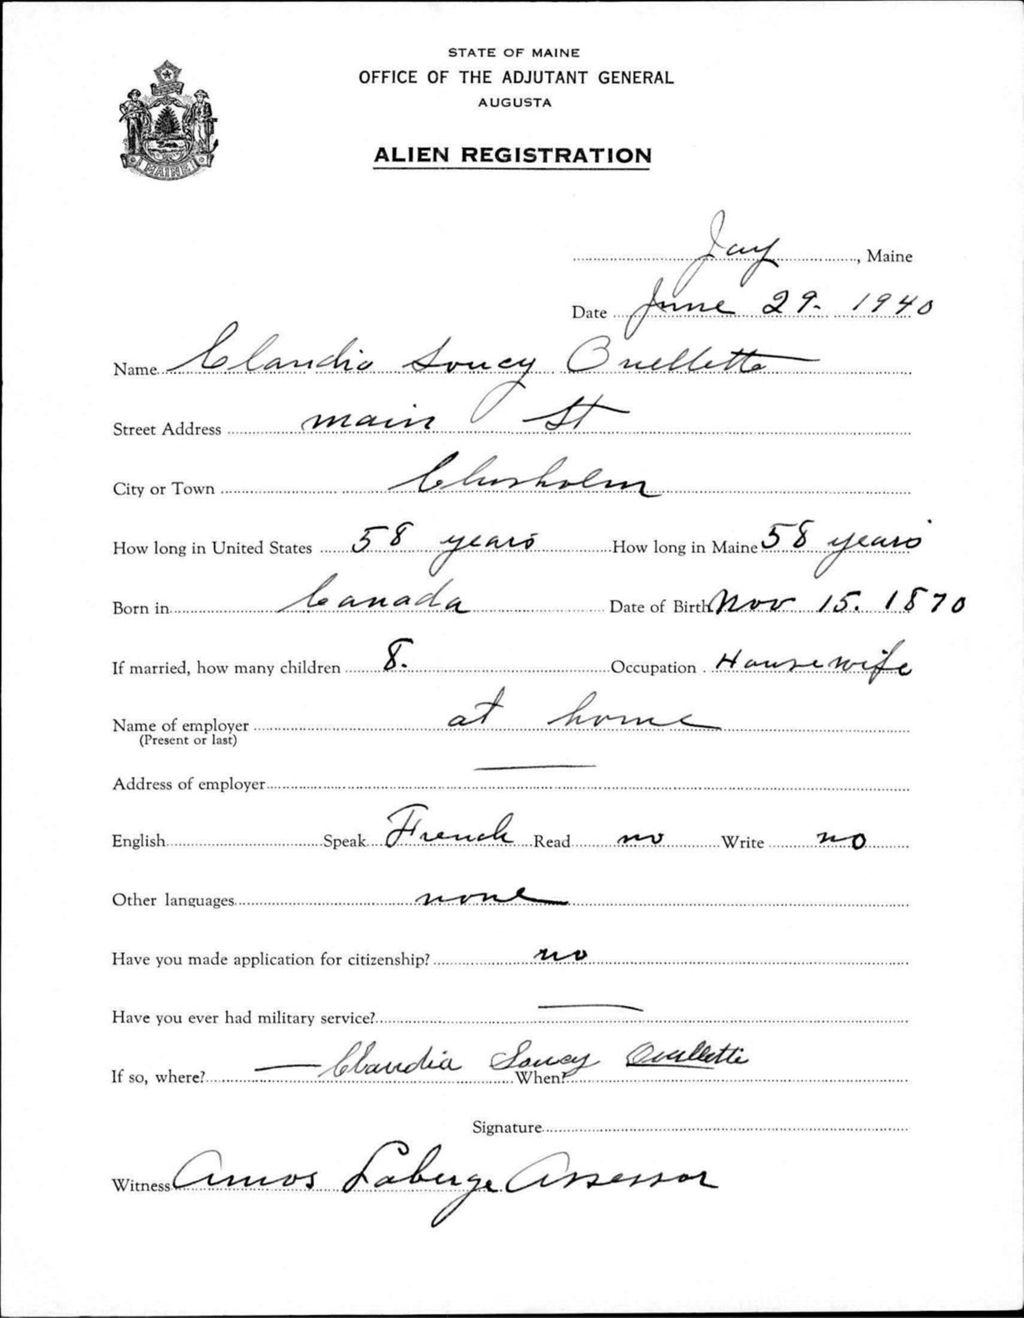 STATE OF MAINE
OFFICE OF THE ADJUTANT GENERAL
AUGUSTA
ALIEN REGISTRATION
MAINE
Jay, Maine
Date June 29. 1940
Name Claudia Soucy Ouellette
Street Address main St
City or Town Chisholm
How long in United States 58 years How long in Maine 58 years
Born in Canada Date of Birth Nov 15. 1870
If married, how many children 8. Occupation Housewife
Name of employer at home
(Present or last)
Address of employer —
English Speak French Read no Write no
Other languages none
Have you made application for citizenship? no
Have you ever had military service? —
If so, where? — Claudia Soucy Ouellette When?
Signature
Witness Amos Laberge Assessor